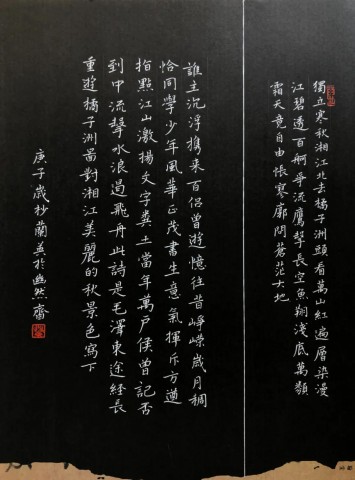 獨立寒秋湘江北去橘子洲頭看萬山紅遍層染漫
江碧透百舸爭流鷹擊長空魚翔淺底萬類
霜天竟自由悵寥廓問蒼茫大地
誰主沉浮攜来百侶曾遊憶往昔崢嶸歲月稠
恰同學少年風華正茂書生意氣揮斥方遒
指點江山激揚文字糞土當年萬戶侯曾記否
到中流擊水浪遏飛舟此詩是毛澤東途經長
重遊橘子洲當對湘江美麗的秋景色寫下
庚子歲杪蘭美於幽然齋